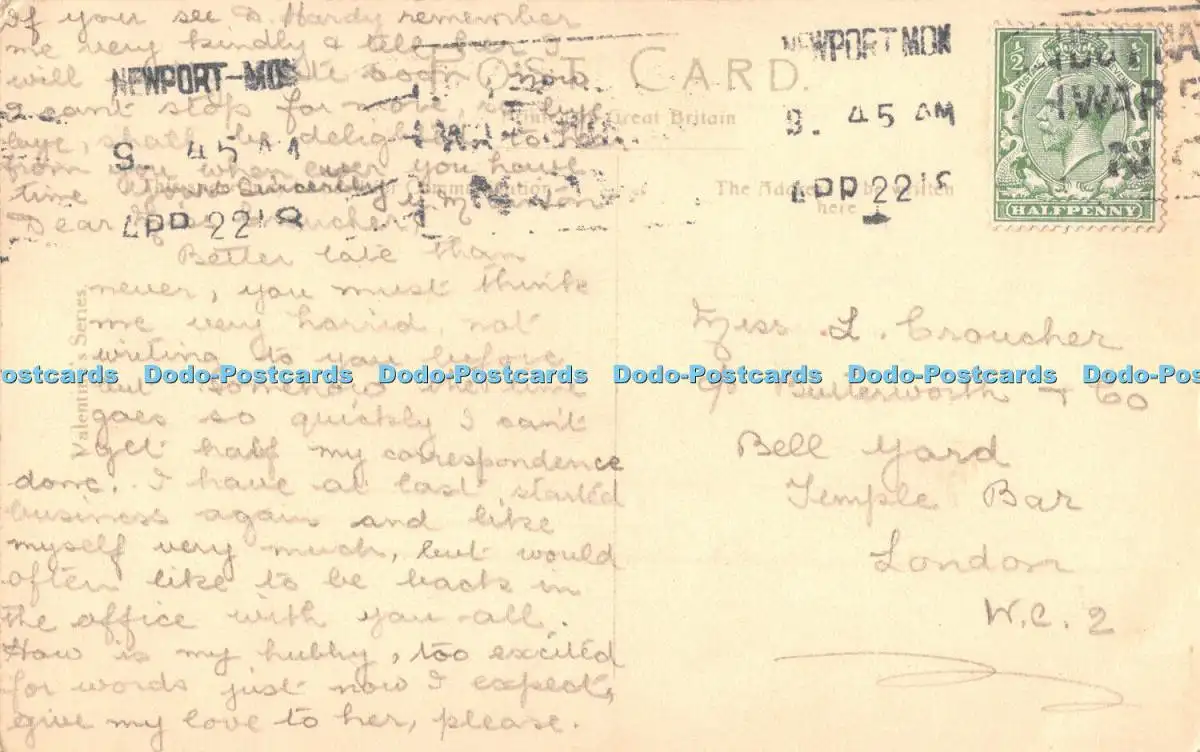 If you see D. Hardy remember
me very kindly & tell her I
will soon, now
I can't stop for more, so bye
bye, shall be delighted to hear
from you when ever you have
time
Yours Sincerely
Dear Miss Croucher,
Better late than
never, you must think
me very horrid, not
writing to you before
but somehow the time
goes so quickly I can't
get half my correspondence
done. I have at last started
business again and like
myself very much, but would
often like to be back in
the office with you all.
How is my hubby, too excited
for words just now I expect,
give my love to her, please.
POST CARD.
Printed in Great Britain
Communication
The Address to be written
here
Valentine's Series
NEWPORT-MON
9. 45 AM
APR 22 18
NEWPORT MON
9. 45 AM
APR 22 18
BUY
WAR
1/2
POSTAGE
REVENUE
HALFPENNY
Miss L. Croucher
c/o Butterworth & Co
Bell Yard
Temple Bar
London
W.C. 2
Dodo-Postcards Dodo-Postcards Dodo-Postcards Dodo-Postcards Dodo-Postcards Dodo-Postcards